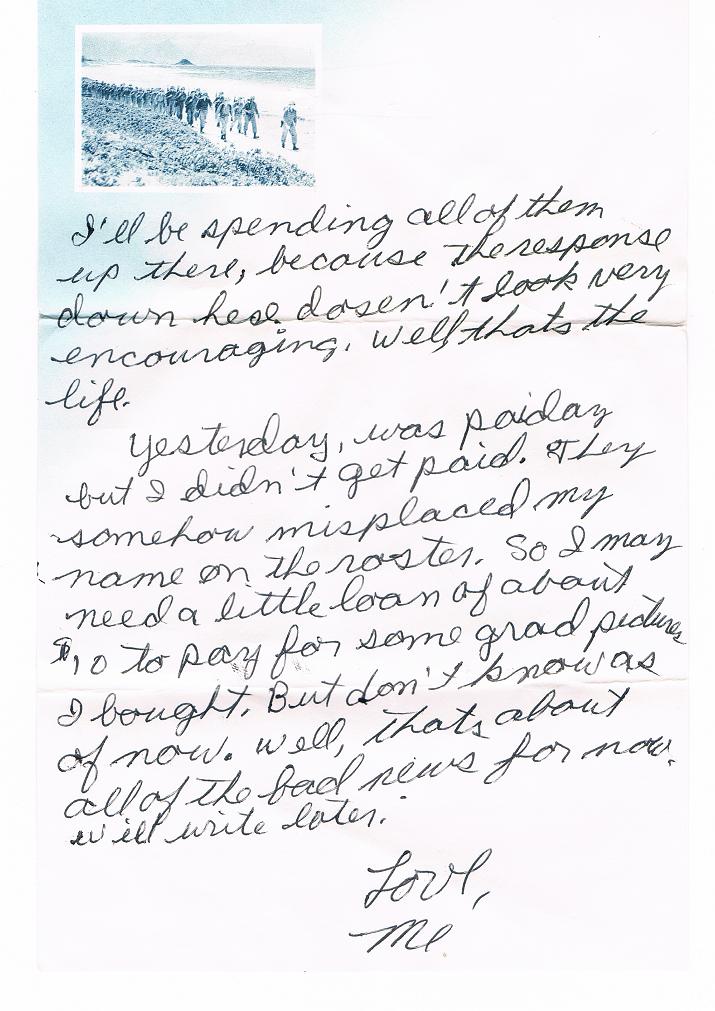 I'll be spending all of them
up there, because the response
down here dosen't look very
encouraging. Well, thats the
life.
Yesterday, was paiday
but I didn't get paid. They
somehow misplaced my
name on the roster. So I may
need a little loan of about
$10 to pay for some grad pictures
I bought. But don't know as
of now. Well, thats about
all of the bad news for now.
Will write later.
Love,
Me